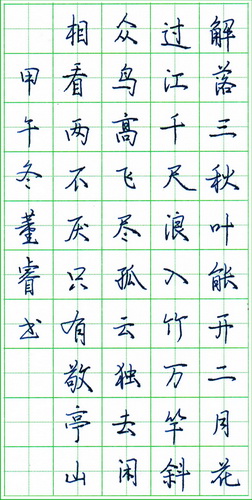 解落三秋叶能开二月花
过江千尺浪入竹万竿斜
众鸟高飞尽孤云独去闲
相看两不厌只有敬亭山
甲午冬董睿书